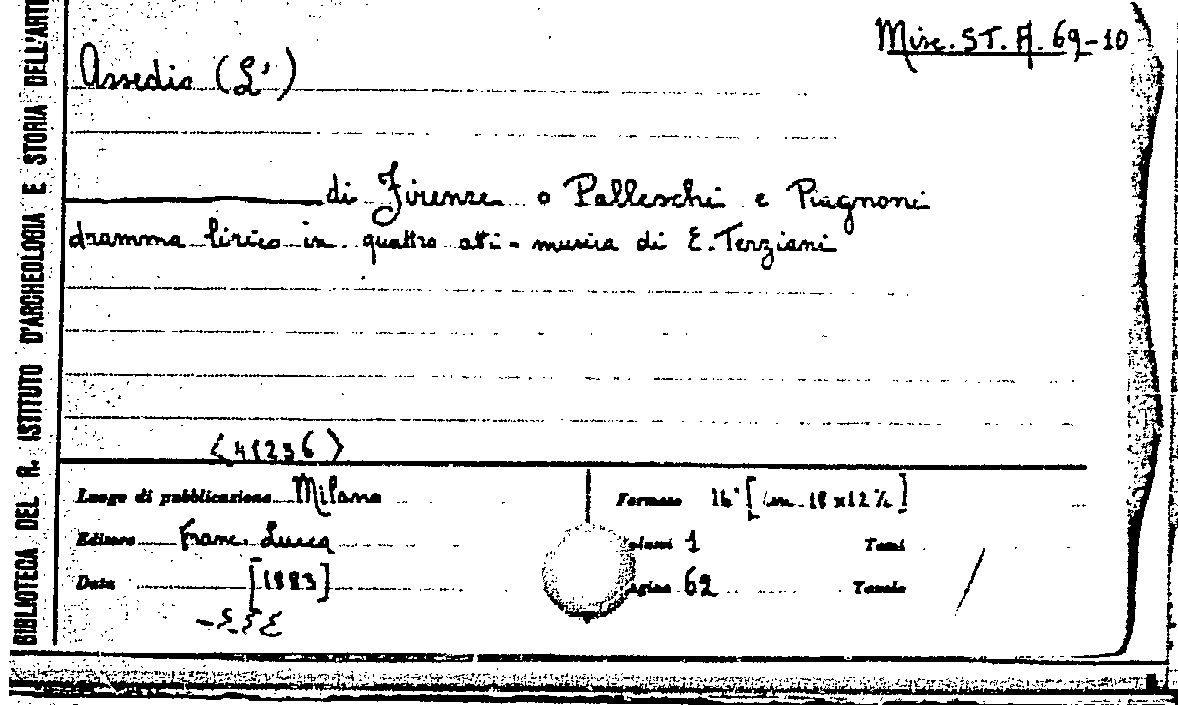 BIBLIOTECA DEL R. ISTITUTO D'ARCHEOLOGIA E STORIA DELL'ARTE
Misc. ST. A. 69-10
Assedio (L')
di Firenze o Palleschi e Piagnoni
dramma lirico in quattro atti - musica di E. Terziani
(41236)
Luogo di pubblicazione Milano
Formato 16° [cm. 18x12½]
Editore Franc. Lucca
olumi 1 Tomi
Data [1883]
agine 62 Tavole